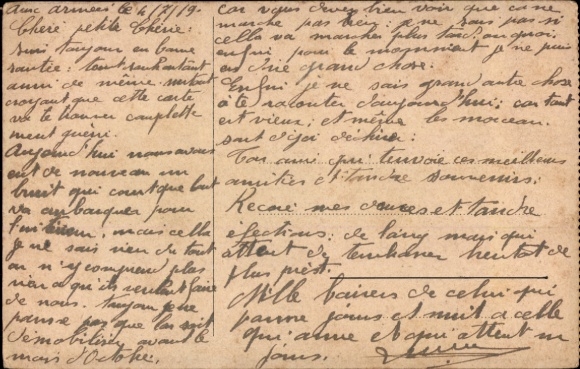 Aux armées le 4/2/19-
Chéré petite Chérie:
suis toujour en bonne
santée: tout souhaitant
ainsi de même. surtout
croyant que cette carte
va te trouver complette
ment guéri.
Aujourd'hui nous avons
eut de nouveau un
bruit qui court que tout
va embarquer pour
mais cella
je ne sais rien du tout
on n'y comprend plus
rien a qu'ils veulent faire
de nous. toujour je ne
panse pas que
démobilisée avant le
mois d'Octobre.
car vous devez bien voir que ca ne
marche pas bien: je ne sous pas si
cella va marcher plus tard, ou quoi.
enfin pour le momnient je ne puis
en dire grand chose.
Enfin je ne sais grand autre chose
à te raconter d'aujourd'hui; car tout
est vieux; et même les morceau
sont d'ejoi
Ton ami qui t'envoie ces meilleurs
amities et tandre souvenirs.
Recoie mes douces et tandre
afections: de lami qui
attent de bientot de
plus près.
Mille baisers de celui qui
panse jours et nuit a celle
qui aime et qui attent un
jours.